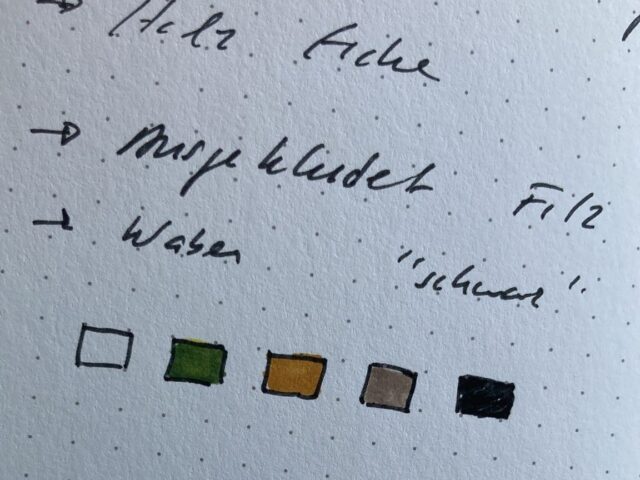 → Holz Eiche
→ Ausgekleidet Filz
→ Waben "schwarz"